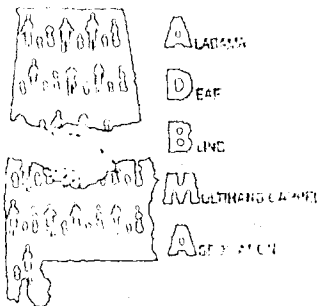 ALABAMA
DEAF
BLIND
MULTIHANDICAPPED
ASSOCIATION